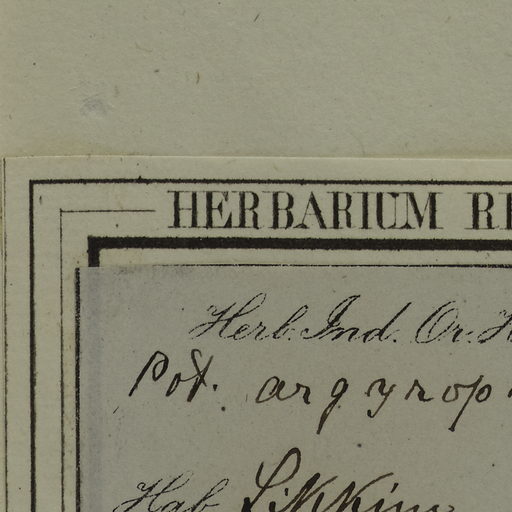 HERBARIUM
Herb. Ind. Or.
Pot. argyrop
Hab. Sikkim